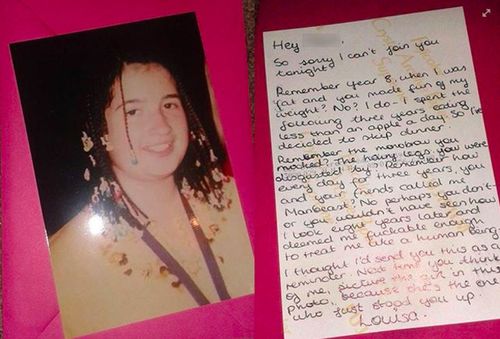 Hey
So sorry I can't join you
tonight.
Remember year 8, when I was
fat and you made fun of my
weight? No? I do - I spent the
following three years eating
less than an apple a day. So I've
decided to skip dinner.
Remember the monobrow you
mocked? The hairy legs you were
disgusted by? Remember how
every day for three years, you
and your friends called me
Manbeast? No perhaps you don't -
or you wouldn't have seen how
I look eight years later and
deemed me fuckable enough
to treat me like a human being.
I thought I'd send you this as a
reminder. Next time you think
of me, picture this girl in this
photo, because she's the one
who just stood you up.
Louisa.